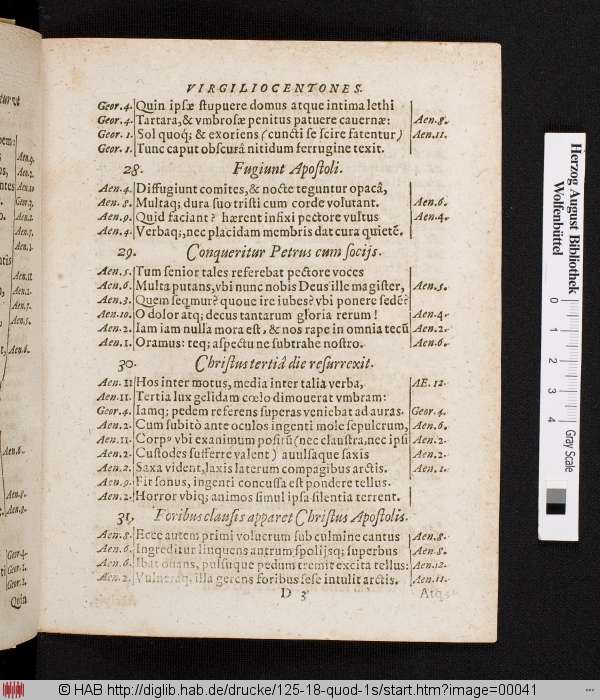 VIRGILIOCENTONES.
Geor. 4. Quin ipsæ stupuere domus atque intima lethi
Geor. 4. Tartara, & vmbrosæ penitus patuere cauernæ: Aen. 8.
Geor. 1. Sol quoq; & exoriens (cuncti se scire fatentur) Aen. 11.
Geor. 1. Tunc caput obscurâ nitidum ferrugine texit.
28. Fugiunt Apostoli.
Aen. 4. Diffugiunt comites, & nocte teguntur opacâ,
Aen. 8. Multaq; dura suo tristi cum corde volutant. Aen. 6.
Aen. 9. Quid faciant? hærent infixi pectore vultus Aen. 4.
Aen. 4. Verbaq;, nec placidam membris dat cura quietē.
29. Conqueritur Petrus cum socijs.
Aen. 5. Tum senior tales referebat pectore voces
Aen. 6. Multa putans, vbi nunc nobis Deus ille magister, Aen. 5.
Aen. 3. Quem seqmur? quoue ire iubes? vbi ponere sedē?
Aen. 10. O dolor atq; decus tantarum gloria rerum! Aen. 4.
Aen. 2. Iam iam nulla mora est, & nos rape in omnia tecū Aen. 2.
Aen. 1. Oramus: teq; aspectu ne subtrahe nostro. Aen. 6.
30. Christus tertiâ die resurrexit.
Aen. 11 Hos inter motus, media inter talia verba, AE. 12.
Aen. 11. Tertia lux gelidam cœlo dimouerat vmbram:
Geor. 4. Iamq; pedem referens superas veniebat ad auras. Geor. 4.
Aen. 2. Cum subitò ante oculos ingenti mole sepulcrum, Aen. 6.
Aen. 11. Corpꝰ vbi exanimum positū (nec claustra, nec ipsi Aen. 2.
Aen. 2. Custodes sufferre valent) auulsaque saxis Aen. 2.
Aen. 2. Saxa vident, laxis laterum compagibus arctis. Aen. 1.
Aen. 9. Fit sonus, ingenti concussa est pondere tellus.
Aen. 2. Horror vbiq; animos simul ipsa silentia terrent.
31. Foribus clausis apparet Christus Apostolis.
Aen. 8. Ecce autem primi volucrum sub culmine cantus Aen. 8.
Aen. 6. Ingreditur linquens antrum spolijsq; superbus Aen. 8.
Aen. 6. Ibat ouans, pulsuque pedum tremit excita tellus: Aen. 12.
Aen. 2. Vulneraq; illa gerens foribus sese intulit arctis. Aen. 11.
D 3 Atq;
Herzog August Bibliothek
Wolfenbüttel
0 1 2 3 4 Gray Scale
© HAB http://diglib.hab.de/drucke/125-18-quod-1s/start.htm?image=00041